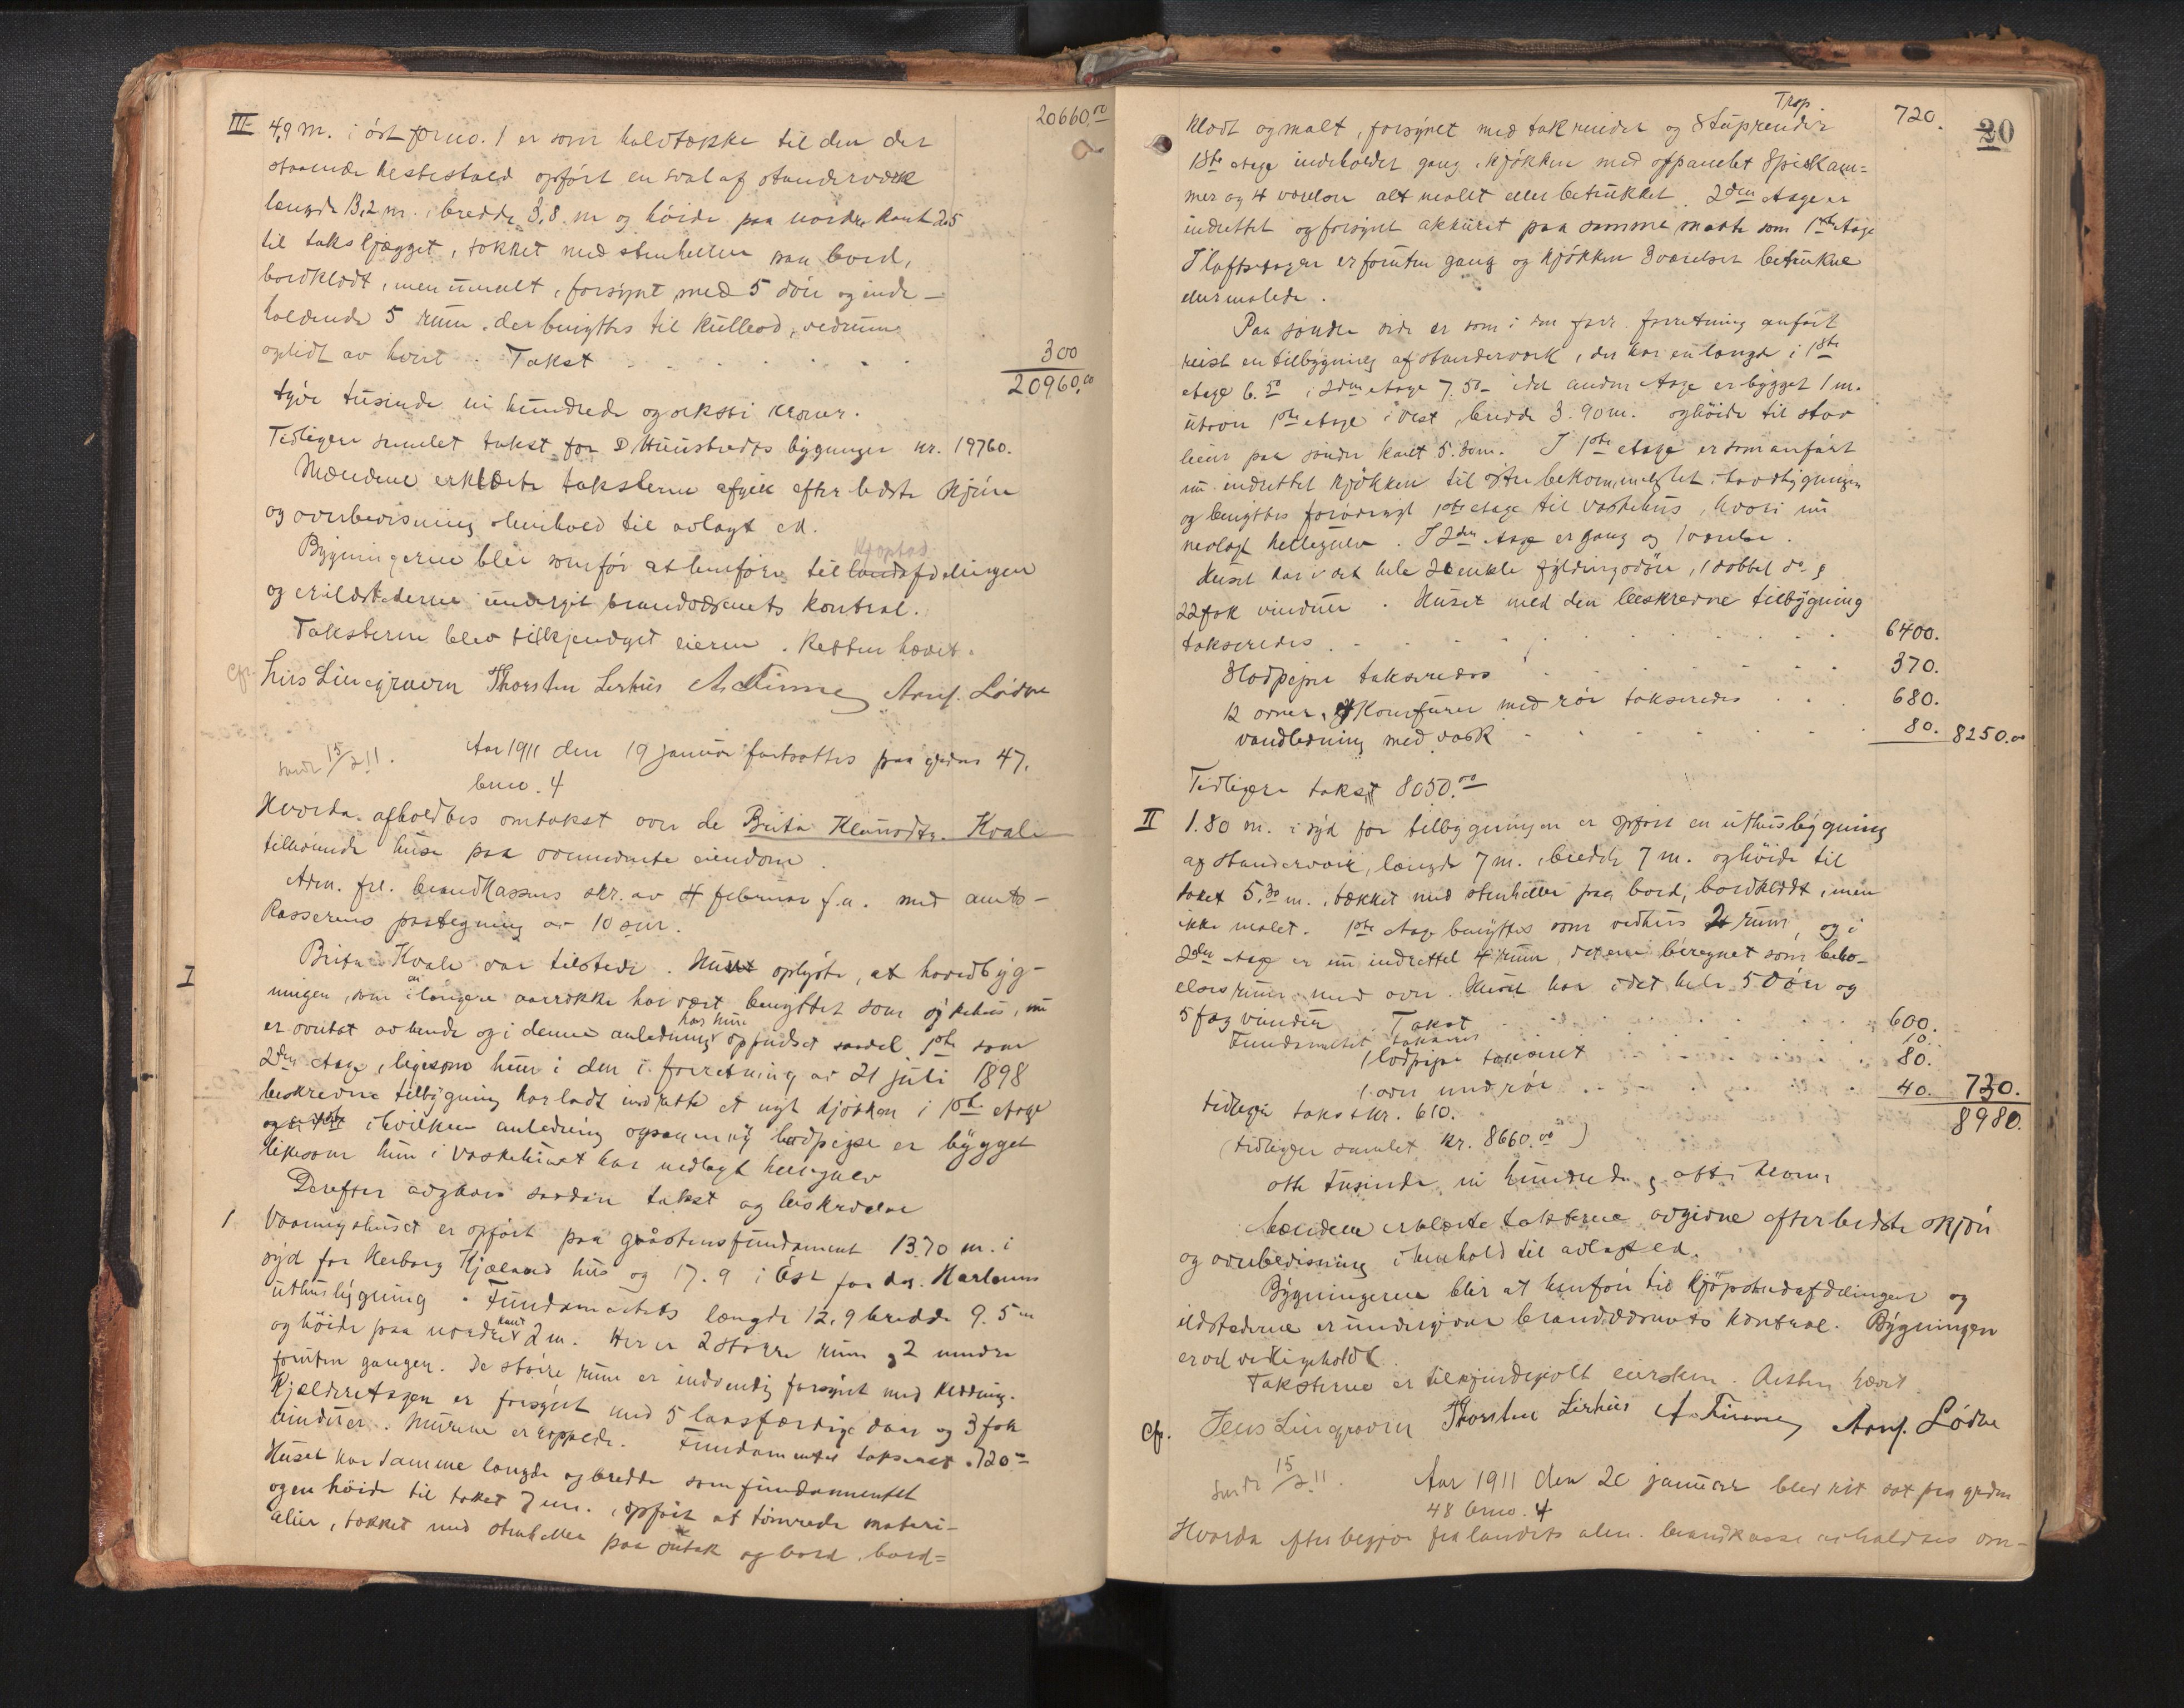 20660.00
III 4,9 m. i öst for no. 1 er som halvtække til den der
staaende hestestald opført en sval af standerverk
længde 13,2 m. bredde 3,8 m og höide paa nordre kant 2.5
til taksljægget, tækket med stenheller paa bord,
bordklædt, men umalt, forsynt med 5 döre og inde-
holdende 5 rum, der benyttes til kulleod, vedrum
og lidt av hvert. Takst . . . . . 300
20960.00
tyve tusinde ni hundrede og seksti kroner.
Tidligere samlet takst for D Huusbedts bygninger kr. 19760.
Mændene erklærte taksterne afgivne efter bedste skjön
og overbevisning i henhold til avlagt ed.
Kjöpstad
Bygningerne blir som för at henföre til landsafdelingen
og er ildstederne undergit brandvæsenets kontrol.
Taksterne blev tilkjendegit eieren. Retten hævet.
cfr. Jens Lindgraven Thorsten Lerhus A. Finne Arnf. Lödve
sendt 15/2 11. Aar 1911 den 19 januar fortsattes paa gaards no 47,
brno. 4
Hvorda afholdtes omtakst over de Brita Klausdtr. Kvale
tilhørende huse paa ovennævnte eiendom.
Adm. frl. brandkassens skr. av 4 februar f.a. med amts-
kasserens paategning av 10 s.m.
I Brita Kvale var tilstede. Hun oplyste, at hovedbyg-
ningen, som i en længere aarrække har vært benyttet som sykehus, nu
er overtat av hende og i denne anledning har hun oppudset saavel 1ste som
2den etage, ligesom hun i den i forretning av 21 juli 1898
beskrevne tilbygning har ladt indrette et nyt kjökken i 1ste etage
og i hvilken anledning ogsaa en ny lodpipe er bygget
likesom hun i vaskehuset har nedlagt hellegulv
Derefter avgaves saadan takst og beskrivelse
1 Vaaningshuset er opfört paa graastensfundament 13.70 m. i
syd for Herborg Kjælaas hus og 17.9 i öst for ds. Hartmans
uthusbygning. Fundamentets længde 12,9 bredde 9.5 m
og höide paa nordre kant 2 m. Her er 2 större rum og 2 mindre
foruten gangen. De störe rum er indvendig forsynt med klædning.
Kjælderetagen er forsynt med 5 laasfærdige döre og 3 fak
vinduer. Murene er rappede. Fundamentet takseret 720.00
Huset har samme længde og bredde som fundamentet
og en höide til taket 7 m., opfört at tömrede materi-
alier, tækket med stenheller paa sutak og bord, bord=
20
Trsp. 720.
klædt og malt, forsynet med takrender og stuprender
1ste etage indeholder gang, kjökken med afpanelet spiskam=
mer og 4 værelser alt malet eller betrukket. 2den etage er
indrettet og forsynt akkurat paa samme maate som 1ste etage
I loftsetagen er foruten gang og kjökken 3 værelser betrukne
eller malede.
Paa söndre side er som i den forr. forretning anfört
reist en tilbygning af standerverk, der har en længde i 1ste
etage 6.50 i 2den etage 7.50 idet anden etage er bygget 1 m.
utover 1ste etage i vest, bredde 3.90 m. og höide til stav
leien paa söndre kant 5.30 m. I 1ste etage er som anfört
nu indrettet kjökken til etter bekvemmelighet i hovedbygningen
og benyttes forövrigt 1ste etage til vaskehus, hvori nu
nedlagt hellegulv. I 2den etage er gang og 1 værelse.
Huset har i det hele 20 enkle fyldingsdöre, 1 dobbel do. og
22 fak vinduer. Huset med den beskrevne tilbygning
takseredes . . . . . 6400.
3 lodpiper takseredes . . . . . 370.
12 ovner og komfurer med rör takseredes . . 680.
vandledning med vask . . . . . 80. 8250.00
Tidligere takst 8050.00
II 1.80 m. i syd for tilbygningen er opfört en uthusbygning
af standerverk, længde 7 m., bredde 7 m. og höide til
taket 5.30 m., tækket med stenheller paa bord, bordklædt, men
ikke malet. 1ste etage benyttes som vedhus 2 rum, og i
2den etage er nu indrettet 4 rum, det ene beregnet som bebo-
elses rum med ovn. Huset har i det hele 5 döre og
5 fag vinduer. Takst . . . . . 600.
Fundamentet takseret 10.
1 lodpipe takseret . . . . . 80.
1 ovn med rör . . . . . 40. 730.
tidligere takst kr. 610. 8980.
(tidligere samlet kr. 8660.00)
otte tusinde ni hundrede og otti kroner
Mændene erklærte taksterne avgivne efter bedste skjön
og overbevisning i henhold til avlagt ed.
Bygningerne blir at henföre til kjöpstadafdelingen og
ildstederne er undergivne brandvæsenets kontrol. Bygningen
er vel vedligeholdt.
Taksterne er tilkjendegivt eiersken. Retten hævet
cfr. Jens Lingraven Thorsten Lerhus A. Finne Arnf. Lödve
sendt 15/2 11. Aar 1911 den 20 januar blev ret sat paa gaards no
48 brno. 4
Hvorda efter begjær fra landets alm. brandkasse avholdtes om-